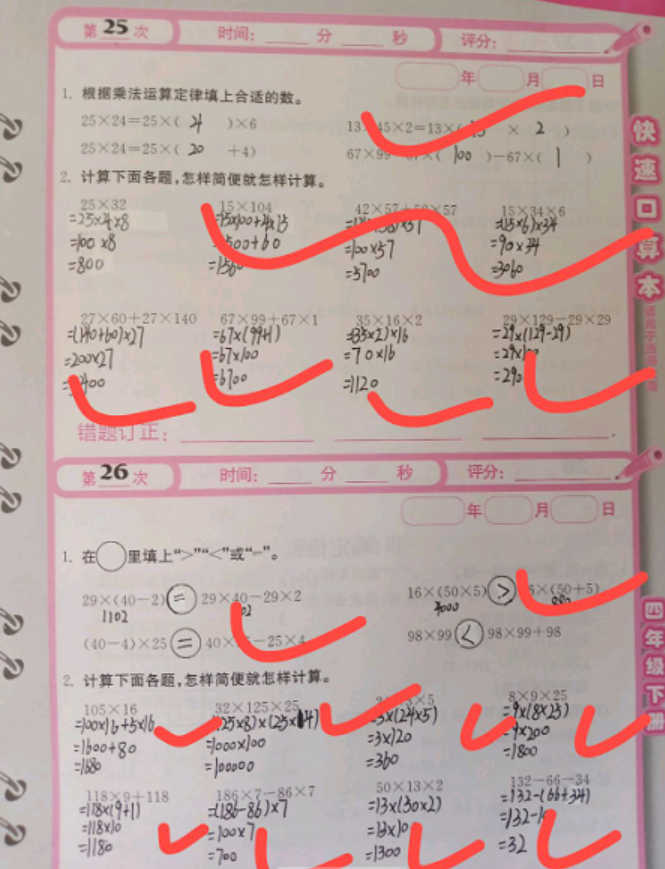 第25次 时间: 分 秒 评分:
年 月 日
1. 根据乘法运算定律填上合适的数。
25×24=25×( 4 )×6
13×45×2=13×( × 2 )
25×24=25×( 20 +4)
67×99 67×( 100 )-67×( 1 )
2. 计算下面各题,怎样简便就怎样计算。
25×32
=25×4×8
=100×8
=800
15×104
=15×100+4×15
=1500+60
=1560
42×57+58×57
=100×57
=5700
15×34×6
=(15×6)×34
=90×34
=3060
27×60+27×140
=(140+60)×27
=200×27
67×99+67×1
=67×(99+1)
=67×100
=6700
35×16×2
=(35×2)×16
=70×16
=1120
29×129-29×29
=29×(129-29)
错题订正:
第26次 时间: 分 秒 评分:
年 月 日
1. 在 里填上“>”“<”或“=”。
29×(40-2) = 29×40-29×2
1102
16×(50×5) > ×(50+5)
4000 880
(40-4)×25 = 40× -25×4
98×99 < 98×99+98
2. 计算下面各题,怎样简便就怎样计算。
105×16
=100×16+5×16
=1600+80
=1680
32×125×25
=1000×100
=100000
=3×(24×5)
=3×120
=360
8×9×25
=9×(8×25)
=9×200
=1800
118×9+118
=118×(9+1)
=118×10
=1180
186×7-86×7
=(186-86)×7
=100×7
=700
50×13×2
=13×(50×2)
=1300
132-66-34
=132-(66+34)
=32
快速口算本
四年级下册